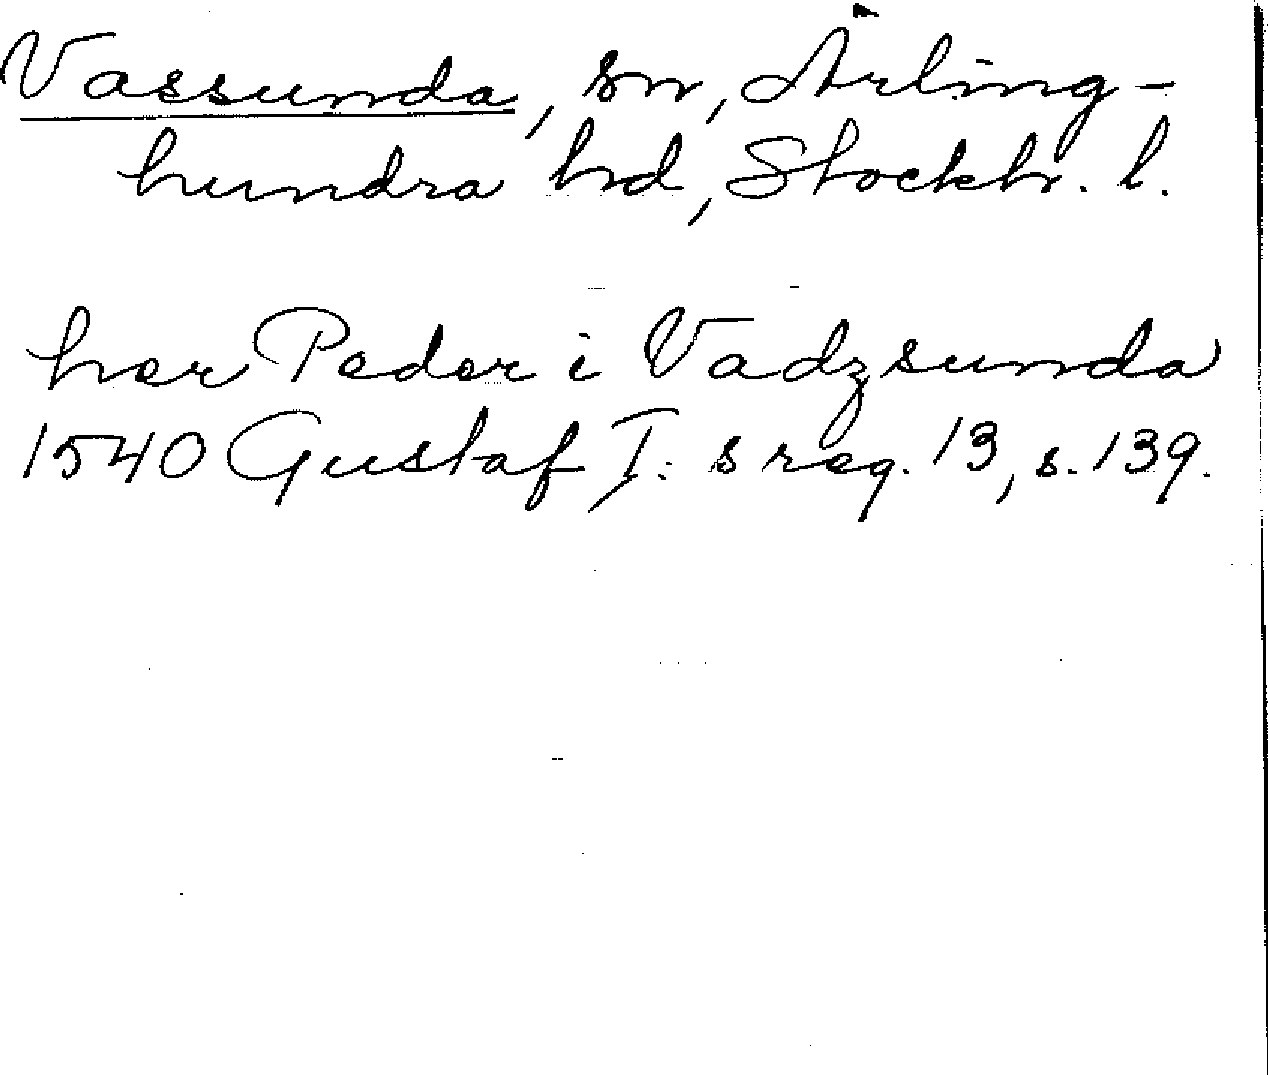 Vassunda, sn, Ärling-
hundra hd, Stockh. l.
her Peder i Vadzsunda
1540 Gustaf I: s reg. 13, s. 139.